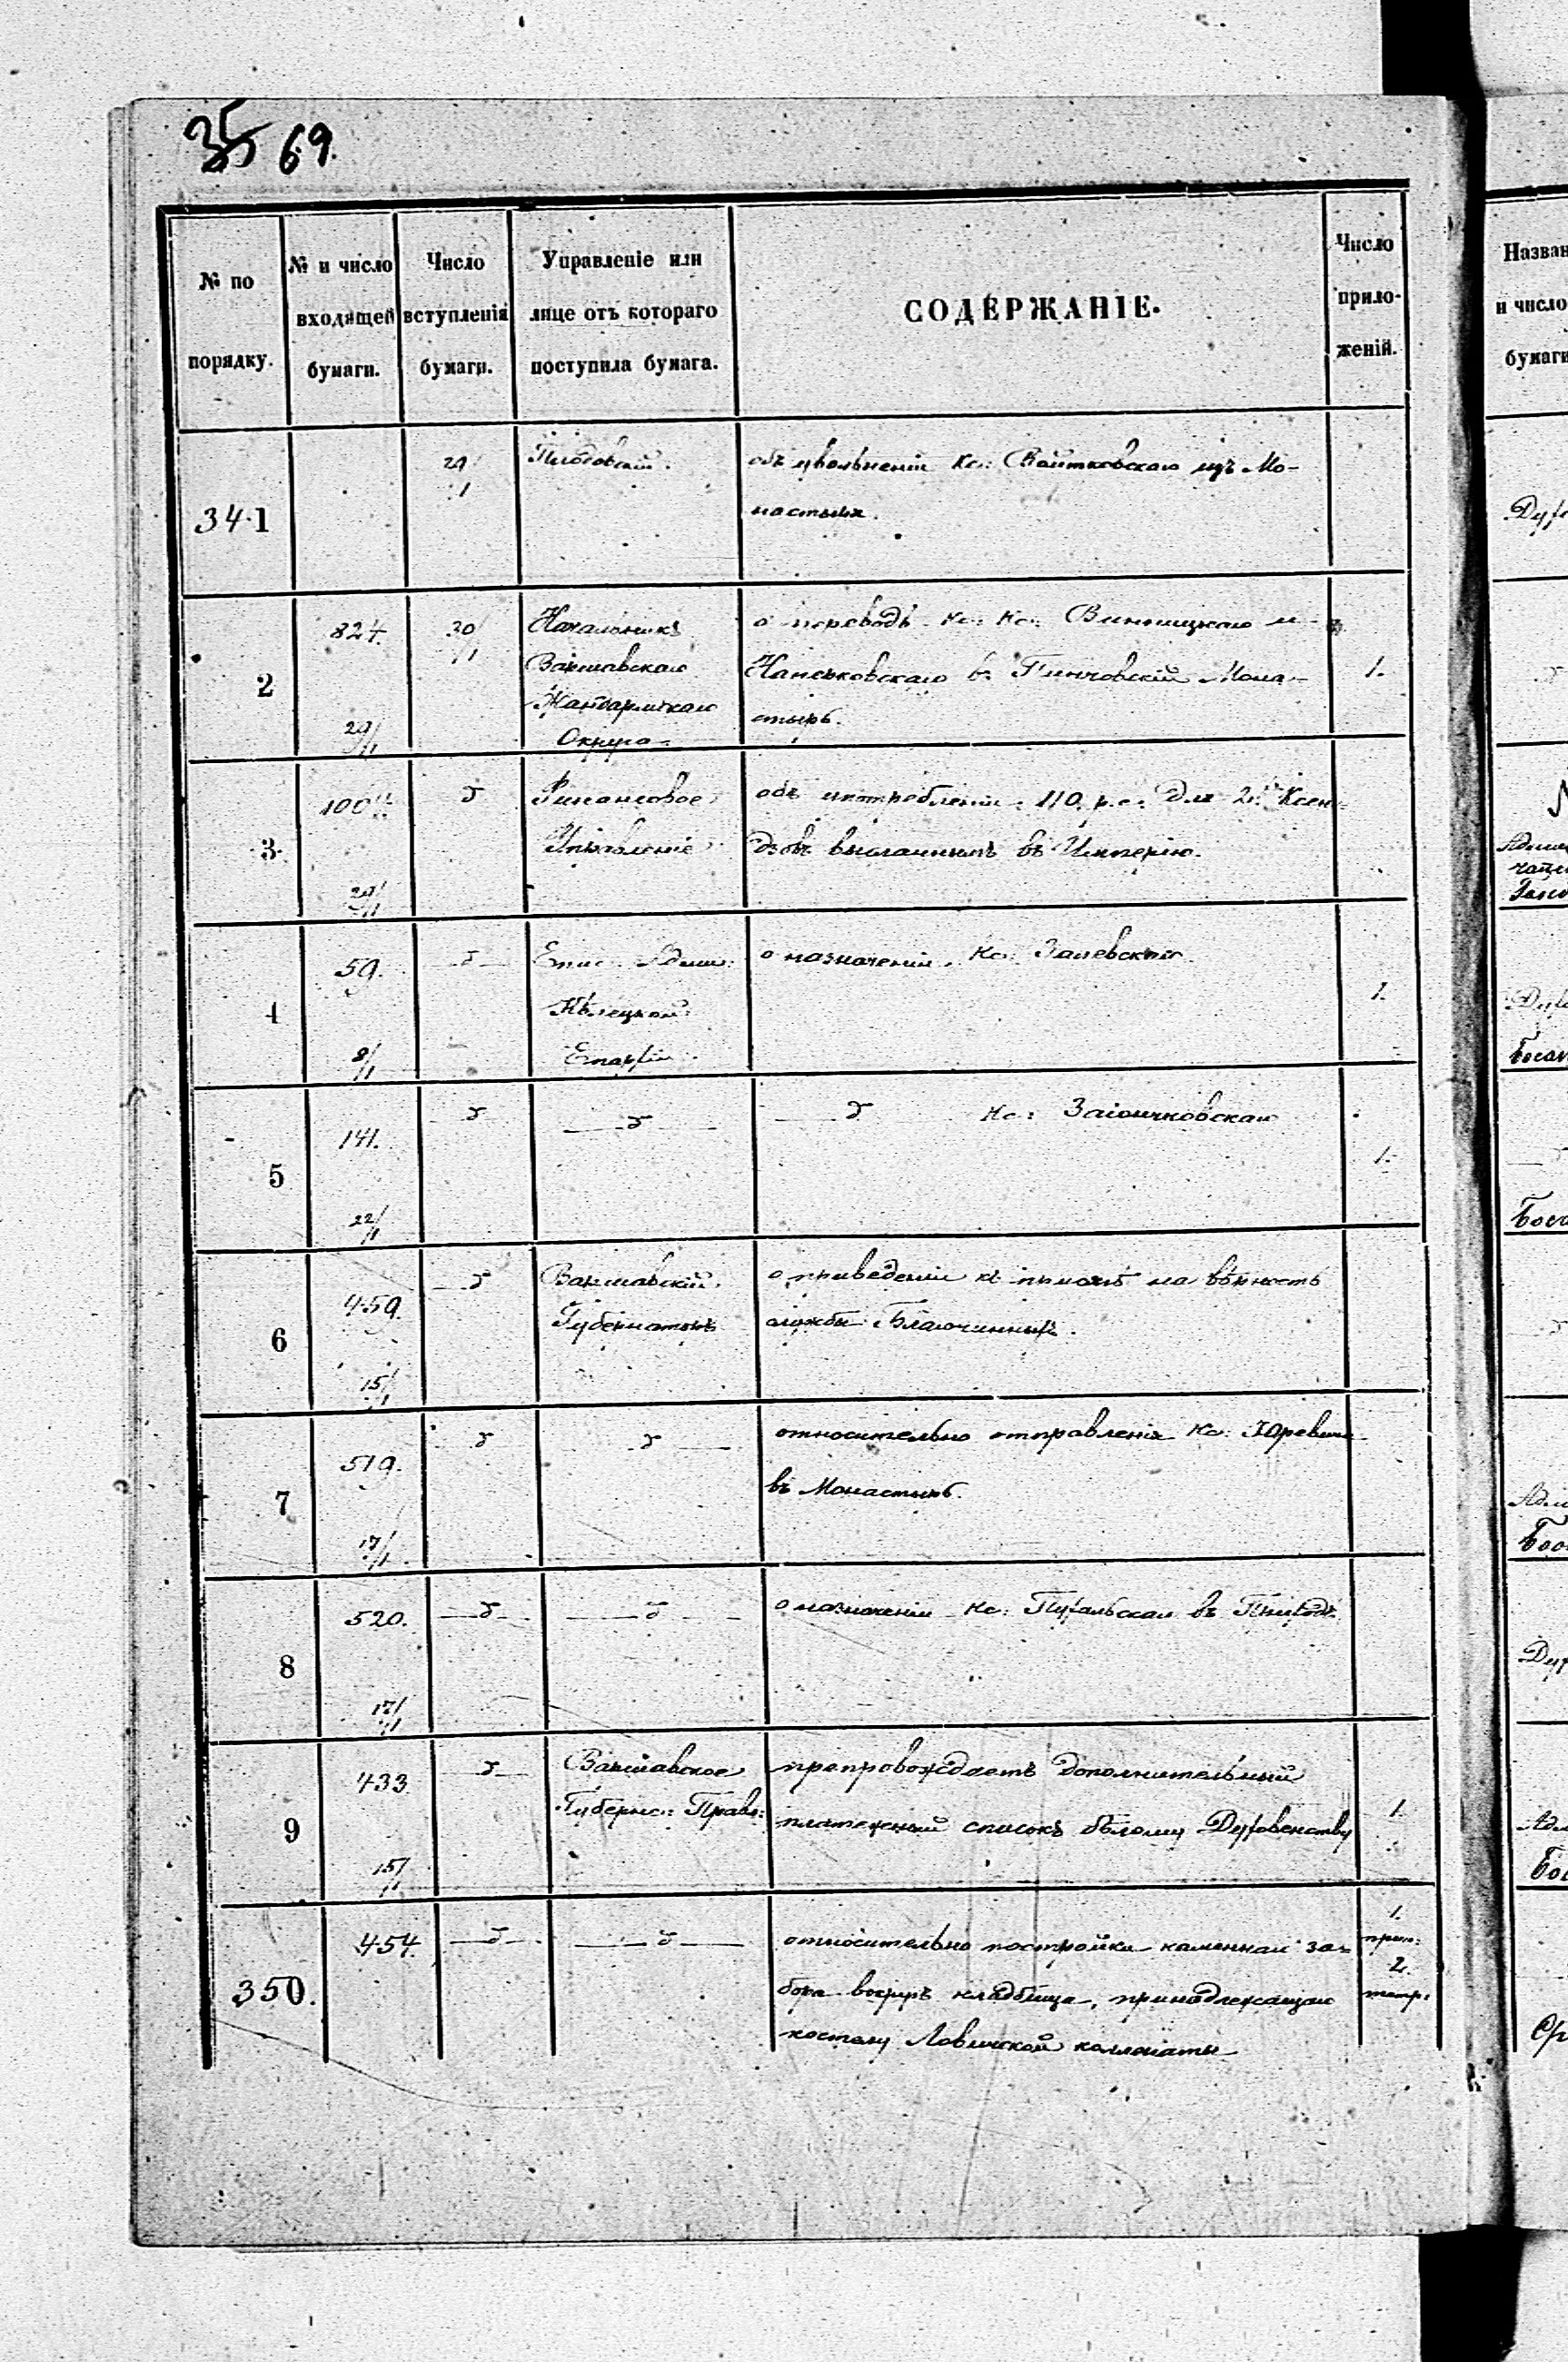 35 69.
№ по
порядку.
№ и число
входящей
бумаги.
Число
вступленія
бумаги.
Управленіе или
лице отъ котораго
поступила бумага.
СОДЕРЖАНІЕ.
Число
прило-
женій.
341
29/1
объ увольненіи Кс: Войтковскаго изъ Мо-
настыря.
2
824.
29/1
30/1
Начальникъ
Варшавскаго
Жандармскаго
Округа
о переводѣ Кс: Кс: Винницкаго и
Ханьковскаго въ Пинчовскій Мона-
стырь.
1.
3
100
29/1
Финансовое
Управленіе
объ истребленіи 110 р.с. для 2х Ксен-
дзовъ высланнымъ въ Имперію.
4
59.
8/1
Епис. Адми:
Кѣлецкой
Епархіи
о назначеніи Кс: Залевскаго
1.
5
141.
22/1
Кс: Заіончковскаго
1.
6
459.
15/1
Варшавскій
Губернаторъ
о приведеніи къ присягѣ на вѣрность
службы Благочинныхъ.
7
519.
17/1
относительно отправленія Кс: Юревича
въ Монастырь.
8
520.
17/1
о назначеніи Кс: Пухальскаго въ
9
433.
15/1
Варшавское
Губернс: Правл:
препровождаетъ дополнительный
платежный списокъ бѣлому Духовенству
1.
350.
454.
относительно постройки каменнаго за-
бора вокругъ кладбища, принадлежащаго
костелу Ловичской коллегіаты
1.
прил:
2.